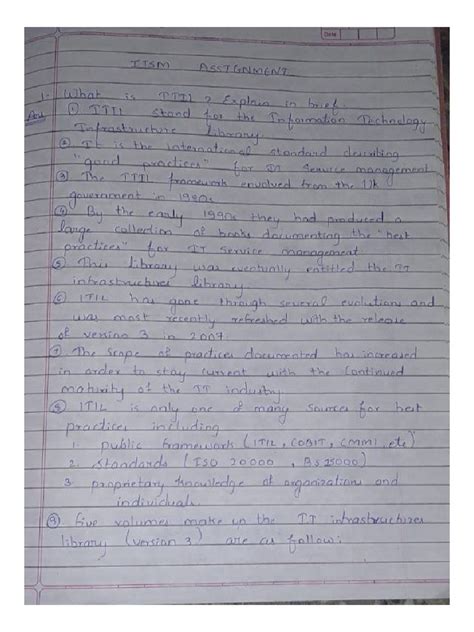 Date
ITSM ASSIGNMENT
1- What is ITIL ? Explain in brief.
Ans ① ITIL stand for the Information Technology
Infrastructure library
② It is the international standard describing
"good practices" for IT service management
③ The ITIL framework envolved from the UK
government in 1980s
④ By the early 1990s they had produced a
large collection of books documenting the "best
practices" for IT service management
⑤ This library was eventually entitled the IT
infrastructures library.
⑥ ITIL has gone through several evolutions and
was most recently refreshed with the release
of version 3 in 2007.
⑦ The scope of practices documented has increased
in order to stay current with the continued
maturity of the IT industry
⑧ ITIL is only one of many sources for best
practices including
1. public framework (ITIL, COBIT, CMMI, etc)
2. standards (ISO 20000, BS 25000)
3. proprietary knowledge of organizations and
individuals.
⑨ five volumes make up the IT infrastructures
library (version 3) are as follow: